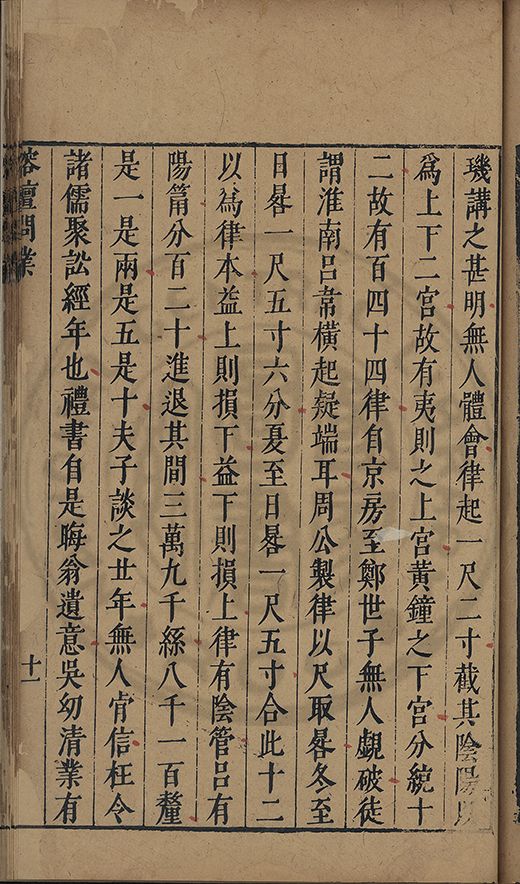 璣講之甚明無人體會律起一尺二寸截其陰陽以
爲上下二宮故有夷則之上宮黃鐘之下宮分統十
二故有百四十四律自京房至鄭世子無人覷破徒
謂淮南呂韋橫起疑端耳周公製律以尺取晷冬至
日晷一尺五寸六分夏至日晷一尺五寸合此十二
以爲律本益上則損下益下則損上律有陰管呂有
陽筩分百二十進退其間三萬九千綵八千一百釐
是一是兩是五是十夫子談之廿年無人肯信枉令
諸儒聚訟經年也禮書自是晦翁遺意吳幼清業有
榕壇問業
十一